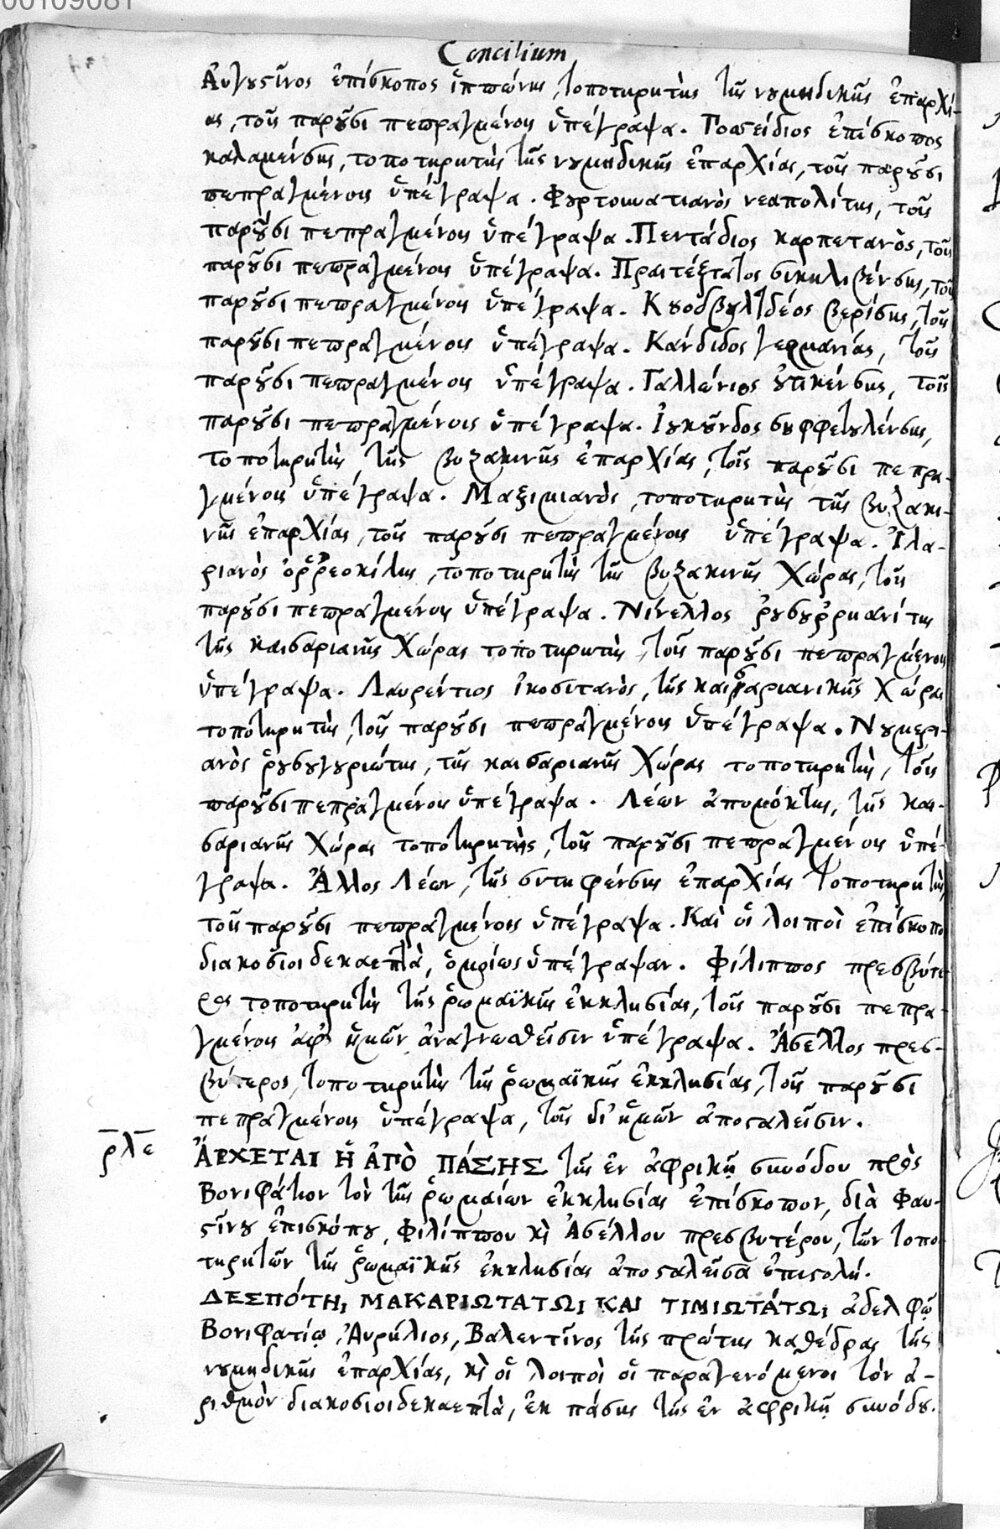 00109081
Concilium
Αὐγουστῖνος ἐπίσκοπος ἱππῶνης, τοποτηρητὴς τῆς νουμηδικῆς ἐπαρχί-
ας, τοῖς παροῦσι πεπραγμένοις ὑπέγραψα. Ποσσείδιος ἐπίσκοπος
καλαμένσης, τοποτηρητὴς τῆς νουμηδικῆς ἐπαρχίας, τοῖς παροῦσι
πεπραγμένοις ὑπέγραψα. Φουρτουνατιανὸς νεαπολίτης, τοῖς
παροῦσι πεπραγμένοις ὑπέγραψα. Πεντάδιος καρπετανὸς, τοῖς
παροῦσι πεπραγμένοις ὑπέγραψα. Πραιτέξτατος σικηλιβένσης, τοῖς
παροῦσι πεπραγμένοις ὑπέγραψα. Κυοδβουλτδέος βερίσης, τοῖς
παροῦσι πεπραγμένοις ὑπέγραψα. Κάνδιδος γερμανίας, τοῖς
παροῦσι πεπραγμένοις ὑπέγραψα. Γαλλώνιος οὐτικένσης, τοῖς
παροῦσι πεπραγμένοις ὑπέγραψα. Ἰουκοῦνδος σουφφετουλένσης,
τοποτηρητὴς τῆς βυζακινῆς ἐπαρχίας, τοῖς παροῦσι πεπρα-
γμένοις ὑπέγραψα. Μαξιμιανὸς, τοποτηρητὴς τῆς βυζακι-
νῆς ἐπαρχίας, τοῖς παροῦσι πεπραγμένοις ὑπέγραψα. Ἱλα-
ριανὸς ὁρρεοκίλης, τοποτηρητὴς τῆς βυζακινῆς χώρας, τοῖς
παροῦσι πεπραγμένοις ὑπέγραψα. Νίνελλος ῥουσουρρικανίτης
τῆς καισαριανῆς χώρας τοποτηρητὴς, τοῖς παροῦσι πεπραγμένοις
ὑπέγραψα. Λαυρέντιος ἰκοσιτανὸς, τῆς καισαριανικῆς χώρας
τοποτηρητὴς, τοῖς παροῦσι πεπραγμένοις ὑπέγραψα. Νουμερι-
ανὸς ῥουσουγουριώτης, τῆς καισαριανῆς χώρας τοποτηρητὴς, τοῖς
παροῦσι πεπραγμένοις ὑπέγραψα. Λέων ἀπομόκτης, τῆς και-
σαριανῆς χώρας τοποτηρητὴς, τοῖς παροῦσι πεπραγμένοις ὑπέ-
γραψα. Ἄλλος Λέων, τῆς στιφένσης ἐπαρχίας τοποτηρητὴς,
τοῖς παροῦσι πεπραγμένοις ὑπέγραψα. Καὶ οἱ λοιποὶ ἐπίσκοποι
διακοσιοιδεκαεπτὰ, ὁμοίως ὑπέγραψαν. Φίλιππος πρεσβύτε-
ρος τοποτηρητὴς τῆς ῥωμαϊκῆς ἐκκλησίας, τοῖς παροῦσι πεπρα-
γμένοις ἀφ᾽ ἡμῶν ἀναγνωσθεῖσιν ὑπέγραψα. Ἄσελλος πρεσ-
βύτερος, τοποτηρητὴς τῆς ῥωμαϊκῆς ἐκκλησίας, τοῖς παροῦσι
πεπραγμένοις ὑπέγραψα, τοῖς δι᾽ ἡμῶν ἀποσταλεῖσιν.
ρλε ἌΡΧΕΤΑΙ Ἡ ἈΠῸ ΠΆΣΗΣ τῆς ἐν ἀφρικῇ συνόδου πρὸς
Βονιφάτιον τὸν τῆς ῥωμαίων ἐκκλησίας ἐπίσκοπον, διὰ Φαυ-
στίνου ἐπισκόπου, Φιλίππου κὶ Ἀσέλλου πρεσβυτέρου, τῶν τοπο-
τηρητῶν τῆς ῥωμαϊκῆς ἐκκλησίας ἀποσταλεῖσα ἐπιστολή.
ΔΕΣΠΌΤΗι ΜΑΚΑΡΙΩΤΑΤΩι ΚΑΙ ΤΙΜΙΩΤΆΤΩι ἀδελφῷ
Βονιφατίῳ, Αὐρήλιος, Βαλεντῖνος τῆς πρώτης καθέδρας τῆς
νουμηδικῆς ἐπαρχίας, κὶ οἱ λοιποὶ οἱ παραγενόμενοι τὸν ἀ-
ριθμὸν διακοσιοιδεκαεπτὰ, ἐκ πάσης τῆς ἐν ἀφρικῇ συνόδου.